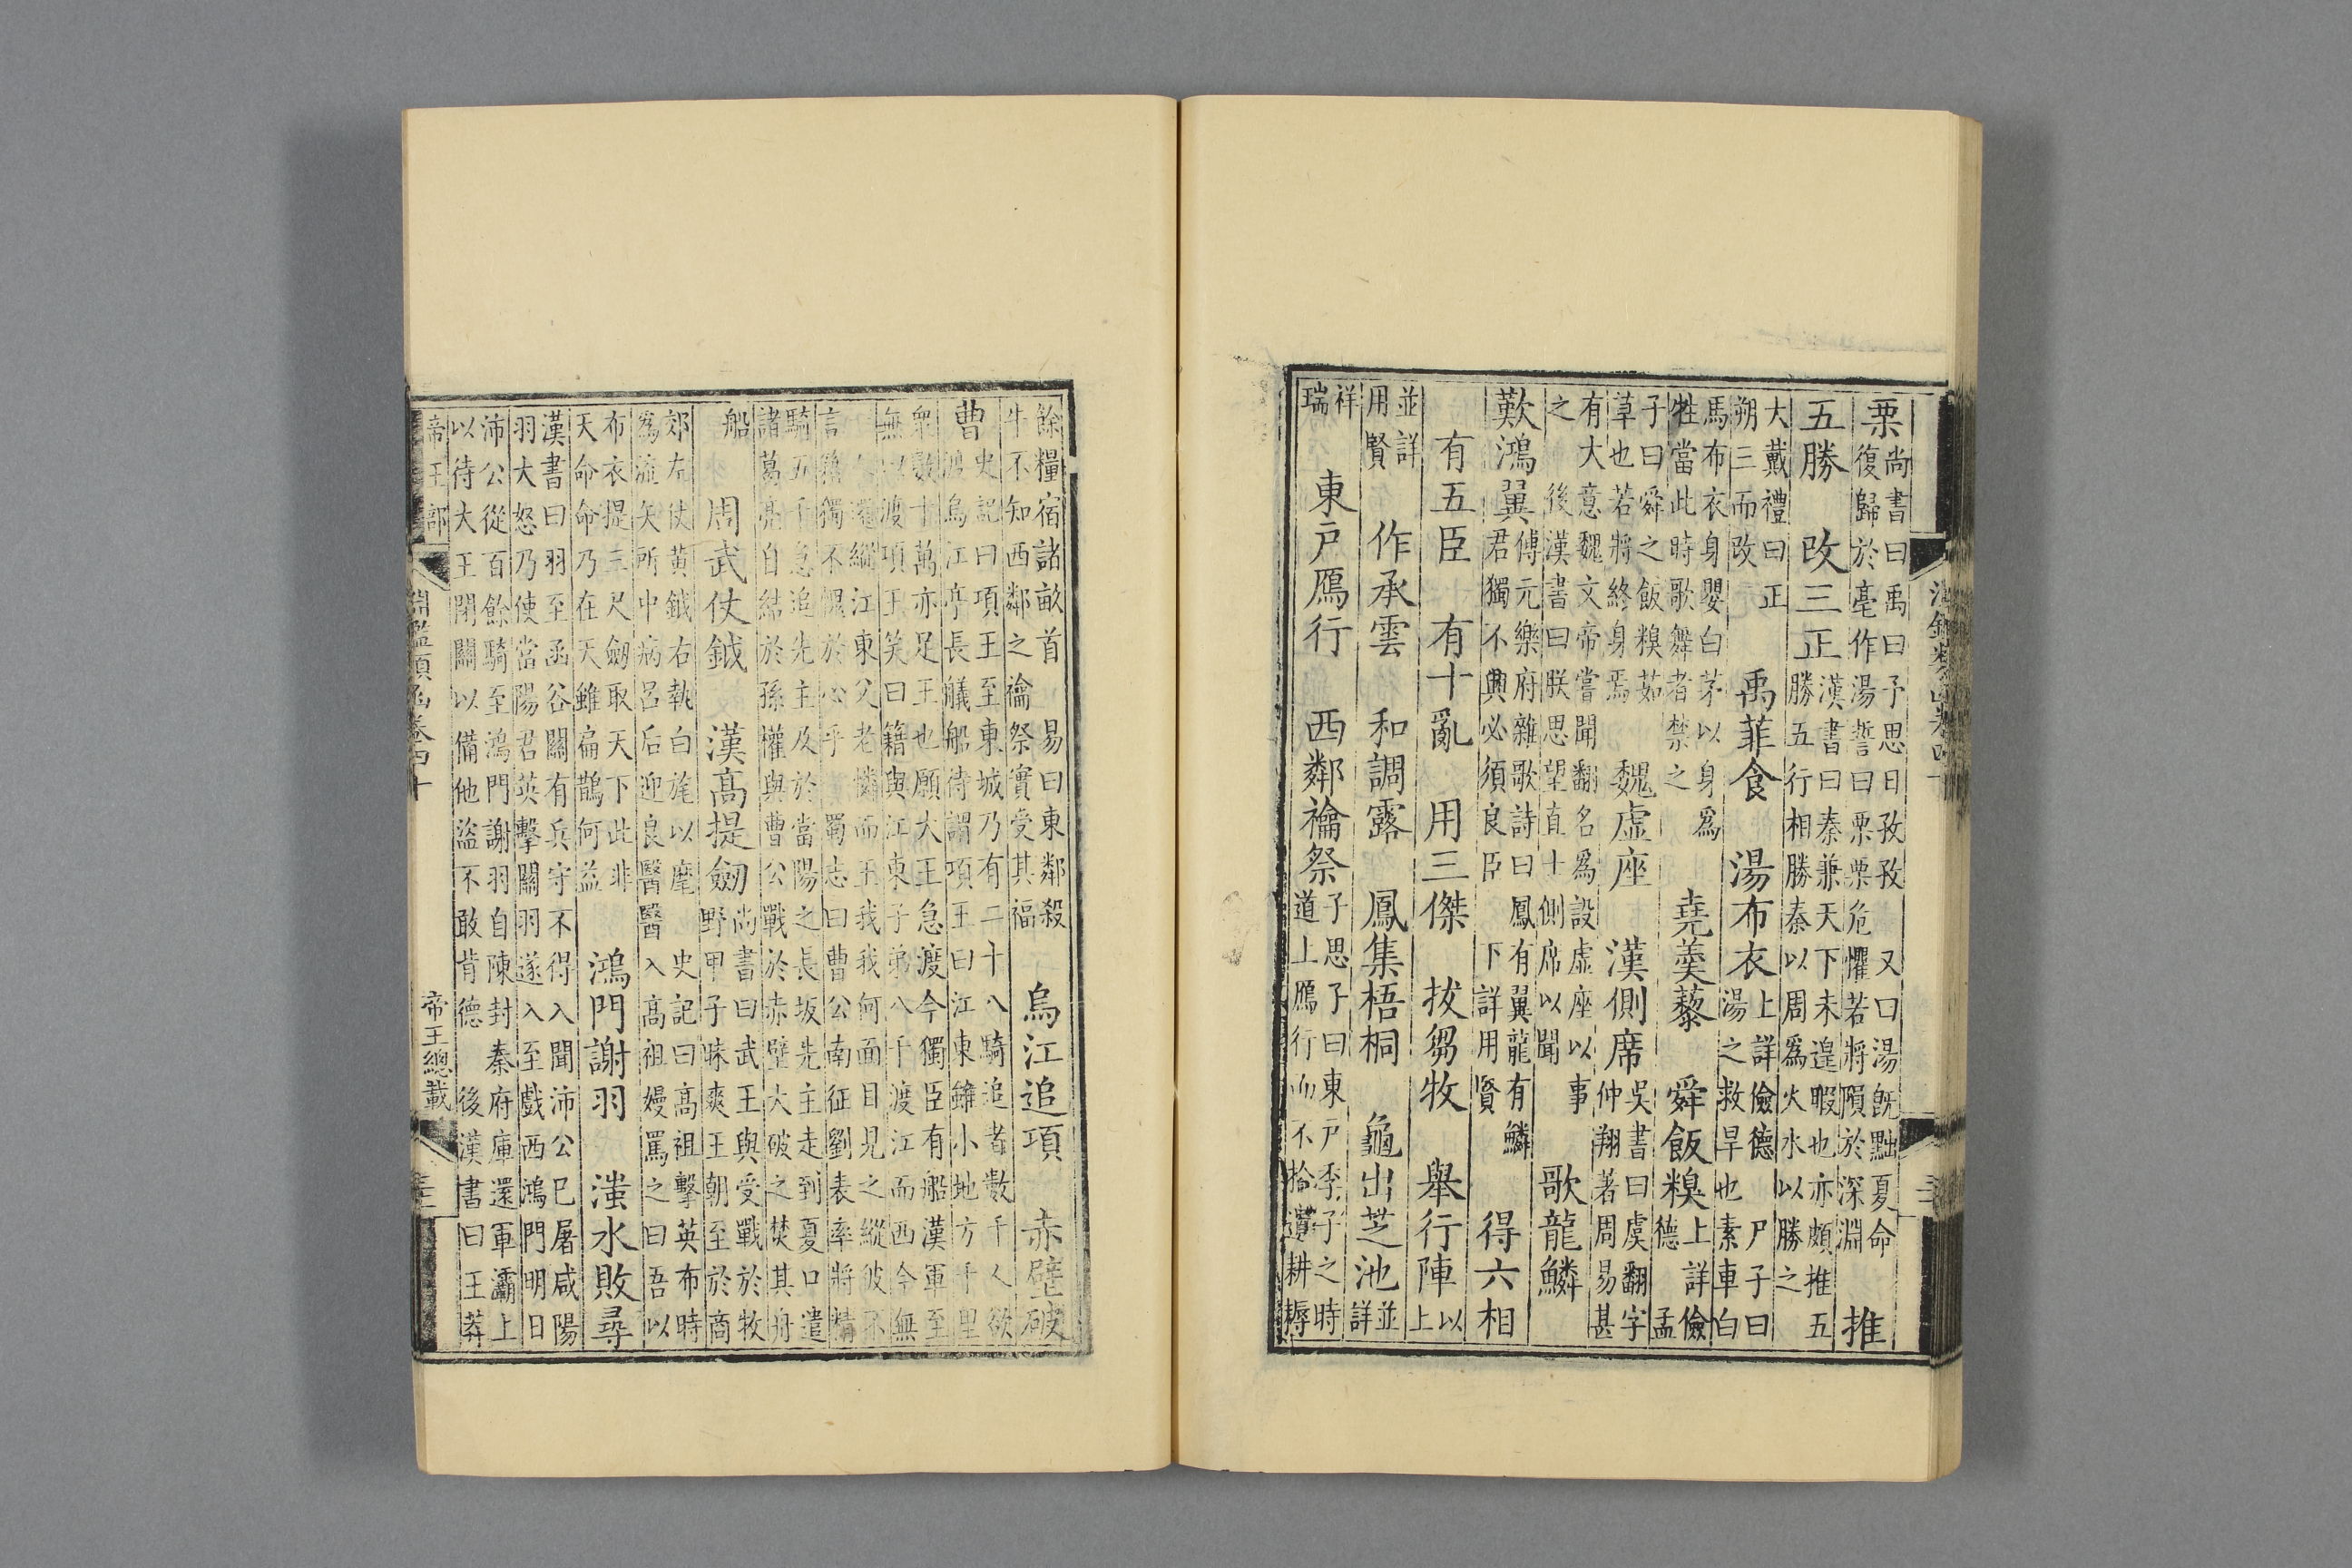 栗尚書曰禹曰予思日孜孜 又曰湯旣黜夏命
復歸於亳作湯誓曰栗栗危懼若將隕於深淵 推
五勝 改三正漢書曰秦兼天下未遑暇也亦頗推五
勝五行相勝秦以周爲火水以勝之
大戴禮曰正
朔三而改 禹菲食 湯布衣上詳儉德 尸子曰
湯之救旱也素車白
馬布衣身嬰白茅以身爲
牲當此時歌舞者禁之 堯羹藜 舜飯糗上詳儉
德 孟
子曰舜之飯糗茹
草也若將終身焉 魏虛座 漢側席吳書曰虞翻字
仲翔著周易甚
有大意魏文帝嘗聞翻名爲設虛座以事
之 後漢書曰朕思望直士側席以聞 歌龍鱗
歎鴻翼傅元樂府雜歌詩曰鳳有翼龍有鱗
君獨不興必須良臣 下詳用賢 得六相
有五臣 有十亂 用三傑 拔芻牧 舉行陣以
上
並詳
用賢 作承雲 和調露 鳳集梧桐 龜出芝池並
詳
祥
瑞 東戸鴈行 西鄰禴祭子思子曰東戸季子之時
道上鴈行而不拾遺耕耨
餘糧宿諸畝首 易曰東鄰殺
牛不知西鄰之禴祭實受其福 烏江追項 赤壁破
曹史記曰項王至東城乃有二十八騎追者數千人欲
渡烏江亭長艤船待謂項王曰江東雖小地方千里
衆數十萬亦足王也願大王急渡今獨臣有船漢軍至
無以渡項王笑曰籍與江東子弟八千渡江而西今無
一人還縱江東父老憐而王我我何面目見之縱彼不
言籍獨不愧於心乎 蜀志曰曹公南征劉表率將精
騎五千急追先主及於當陽之長坂先主走到夏口遣
諸葛亮自結於孫權與曹公戰於赤壁大破之焚其舟
船 周武仗鉞 漢高提劒尚書曰武王與受戰於牧
野甲子昧爽王朝至於商
郊左仗黃鉞右執白旄以麾 史記曰高祖擊英布時
爲流矢所中病呂后迎良醫醫入高祖嫚罵之曰吾以
布衣提三尺劒取天下此非
天命命乃在天雖扁鵲何益 鴻門謝羽 滍水敗尋
漢書曰羽至函谷關有兵守不得入聞沛公已屠咸陽
羽大怒乃使當陽君英擊關羽遂入至戲西鴻門明日
沛公從百餘騎至鴻門謝羽自陳封秦府庫還軍灞上
以待大王閉關以備他盜不敢肯德 後漢書曰王莽
帝王部 淵鑑類函卷四十 帝王總載